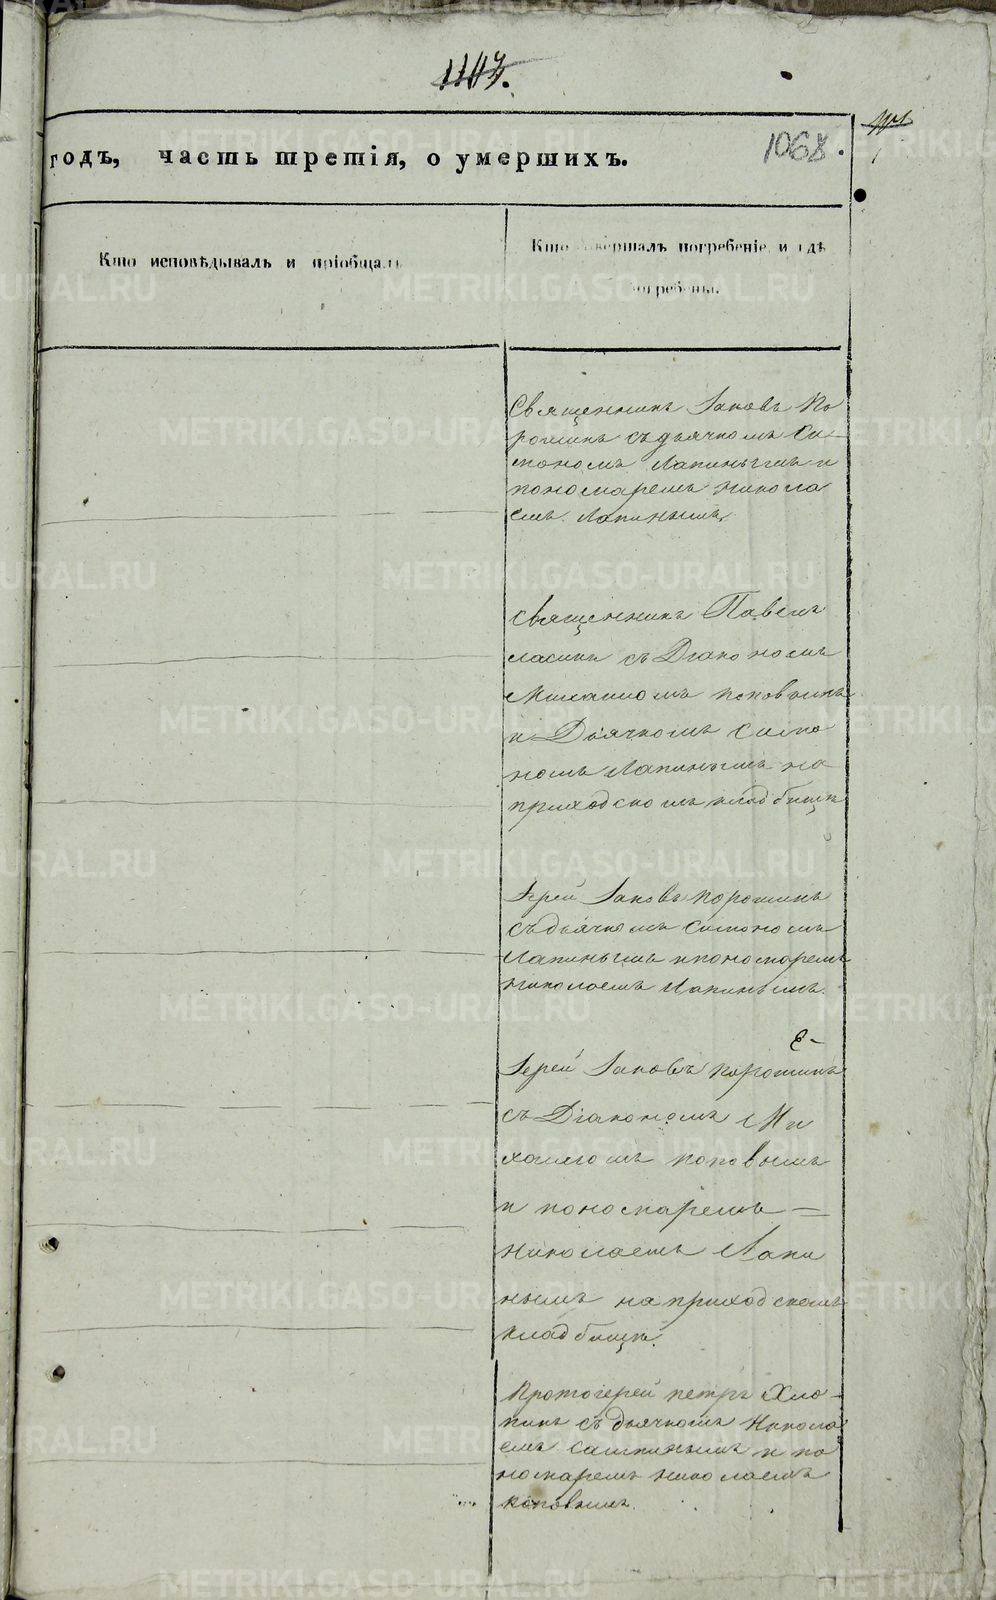 1103.
годъ, часть третія, о умершихъ.
1068.
Кто исповѣдывалъ и пріобщалъ
Кто совершалъ погребеніе и гдѣ
погребены.
Священникъ Іаковъ По
рошинъ съ дьячкомъ Си-
мономъ Лапинымъ и
пономаремъ Никола
емъ Лапинымъ.
Священникъ Павелъ
съ Діакономъ
Михаиломъ Поповымъ
и Дьячкомъ Симо
номъ Лапинымъ на
приходскомъ кладбищѣ
Іерей Іаковъ Порошинъ
съ дьячкомъ Симономъ
Лапинымъ и пономаремъ
Николаемъ Лапинымъ.
Іерей Іаковъ Порошинъ
съ Діакономъ Ми
хаиломъ Поповымъ
и пономаремъ =
Николаемъ Лапи
нымъ на приходскомъ
кладбищѣ.
Протоіерей Петръ Хло-
пинъ съ дьячкомъ Никола
емъ и по
номаремъ Николаемъ
Поповымъ.
METRIKI.GASO-URAL.RU